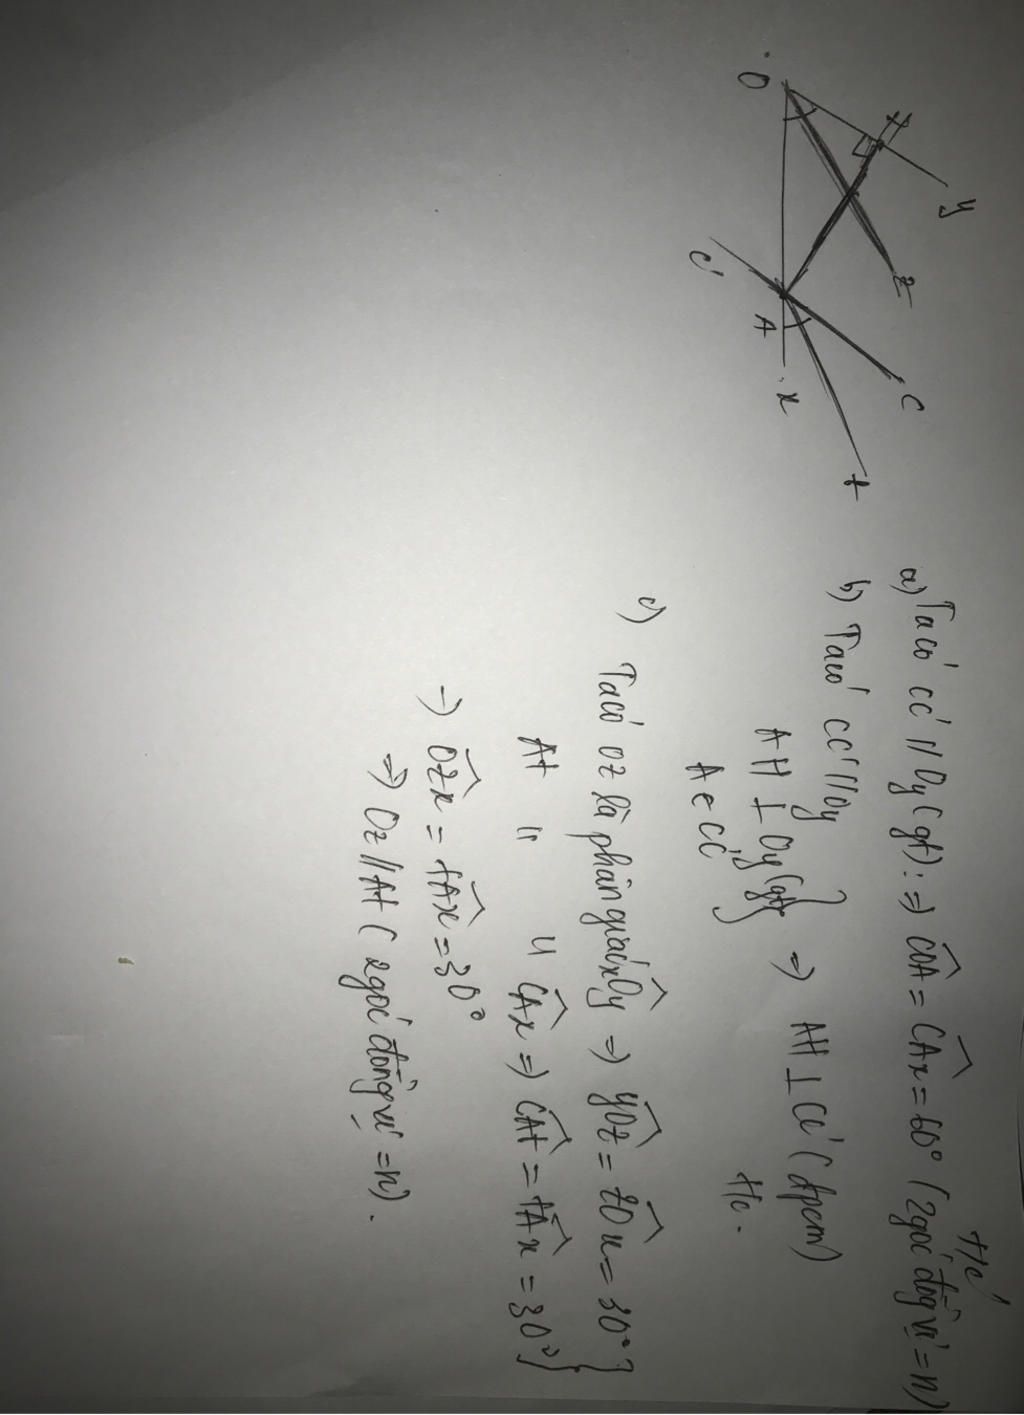 O
H
y
z
C'
A
x
C
t
Hc'
a) Ta có CC' // Oy (gt) : => COA = CAx = 60° (2 góc đồng vị = n)
b) Ta có CC' // Oy
AH ⊥ Oy (gt) } => AH ⊥ CC' (đpcm)
A ∈ CC'
Hc.
c) Ta có Oz là phân giác xOy => yOz = zOx = 30° }
At " " CAx => CAt = tAx = 30° }
-) Ozx = tAx = 30°
=> Oz // At ( 2 góc đồng vị = n) .